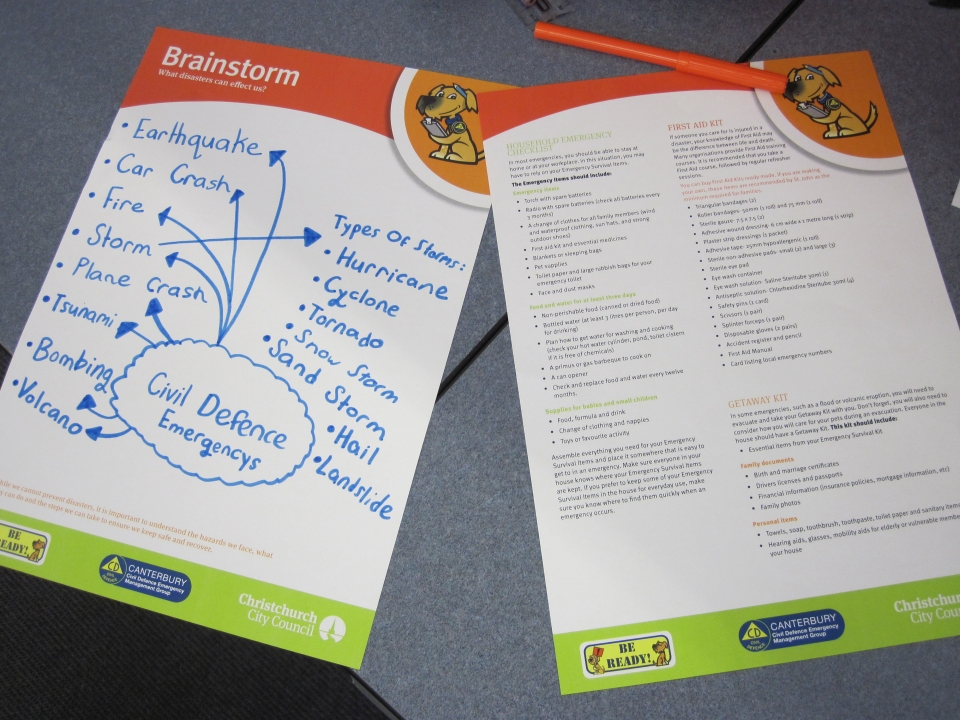 Brainstorm
What disasters can effect us?
• Earthquake
• Car Crash
• Fire
• Storm
• Plane Crash
• Tsunami
• Bombing
• Volcano
Types Of Storms:
• Hurricane
• Cyclone
• Tornado
• Snow Storm
• Sand Storm
• Hail
• Landslide
Civil Defence
Emergencys
we cannot prevent disasters, it is important to understand the hazards we face, what
can do and the steps we can take to ensure we keep safe and recover.
BE
READY!
CD
CIVIL DEFENCE
CANTERBURY
Civil Defence Emergency
Management Group
Christchurch
City Council
HOUSEHOLD EMERGENCY
CHECKLIST
In most emergencies, you should be able to stay at
home or at your workplace. In this situation, you may
have to rely on your Emergency Survival Items.
The Emergency Items should include:
Emergency items
• Torch with spare batteries
• Radio with spare batteries (check all batteries every
3 months)
• A change of clothes for all family members (wind
and waterproof clothing, sun hats, and strong
outdoor shoes)
• First aid kit and essential medicines
• Blankets or sleeping bags
• Pet supplies
• Toilet paper and large rubbish bags for your
emergency toilet
• Face and dust masks
Food and water for at least three days
• Non-perishable food (canned or dried food)
• Bottled water (at least 3 litres per person, per day
for drinking)
• Plan how to get water for washing and cooking
(check your hot water cylinder, pond, toilet cistern
if it is free of chemicals)
• A primus or gas barbeque to cook on
• A can opener
• Check and replace food and water every twelve
months.
Supplies for babies and small children
• Food, formula and drink
• Change of clothing and nappies
• Toys or favourite activity
Assemble everything you need for your Emergency
Survival Items and place it somewhere that is easy to
get to in an emergency. Make sure everyone in your
house knows where your Emergency Survival Items
are kept. If you prefer to keep some of your Emergency
Survival Items in the house for everyday use, make
sure you know where to find them quickly when an
emergency occurs.
FIRST AID KIT
If someone you care for is injured in a
disaster, your knowledge of First Aid may
be the difference between life and death.
Many organisations provide First Aid training
courses. It is recommended that you take a
First Aid course, followed by regular refresher
sessions.
You can buy First Aid Kits ready made. If you are making
your own, these items are recommended by St. John as the
minimum required for families.
• Triangular bandages (2)
• Roller bandages- 50mm (1 roll) and 75 mm (1 roll)
• Sterile gauze- 7.5 x 7.5 (2)
• Adhesive wound dressing- 6 cm wide x 1 metre long (1 strip)
• Plaster strip dressings (1 packet)
• Adhesive tape- 25mm hypoallergenic (1 roll)
• Sterile non adhesive pads- small (2) and large (3)
• Sterile eye pad
• Eye wash container
• Eye wash solution- Saline Steritube 30ml (1)
• Antiseptic solution- Chlorhexidine Steritube 30ml (4)
• Safety pins (1 card)
• Scissors (1 pair)
• Splinter forceps (1 pair)
• Disposable gloves (2 pairs)
• Accident register and pencil
• First Aid Manual
• Card listing local emergency numbers
GETAWAY KIT
In some emergencies, such as a flood or volcanic eruption, you will need to
evacuate and take your Getaway Kit with you. Don't forget, you will also need to
consider how you will care for your pets during an evacuation. Everyone in the
house should have a Getaway Kit. This kit should include:
• Essential items from your Emergency Survival Kit
Family documents
• Birth and marriage certificates
• Drivers licenses and passports
• Financial information (insurance policies, mortgage information, etc)
• Family photos
Personal items
• Towels, soap, toothbrush, toothpaste, toilet paper and sanitary items
• Hearing aids, glasses, mobility aids for elderly or vulnerable
your house
BE
READY!
CD
CIVIL DEFENCE
CANTERBURY
Civil Defence Emergency
Management Group
City